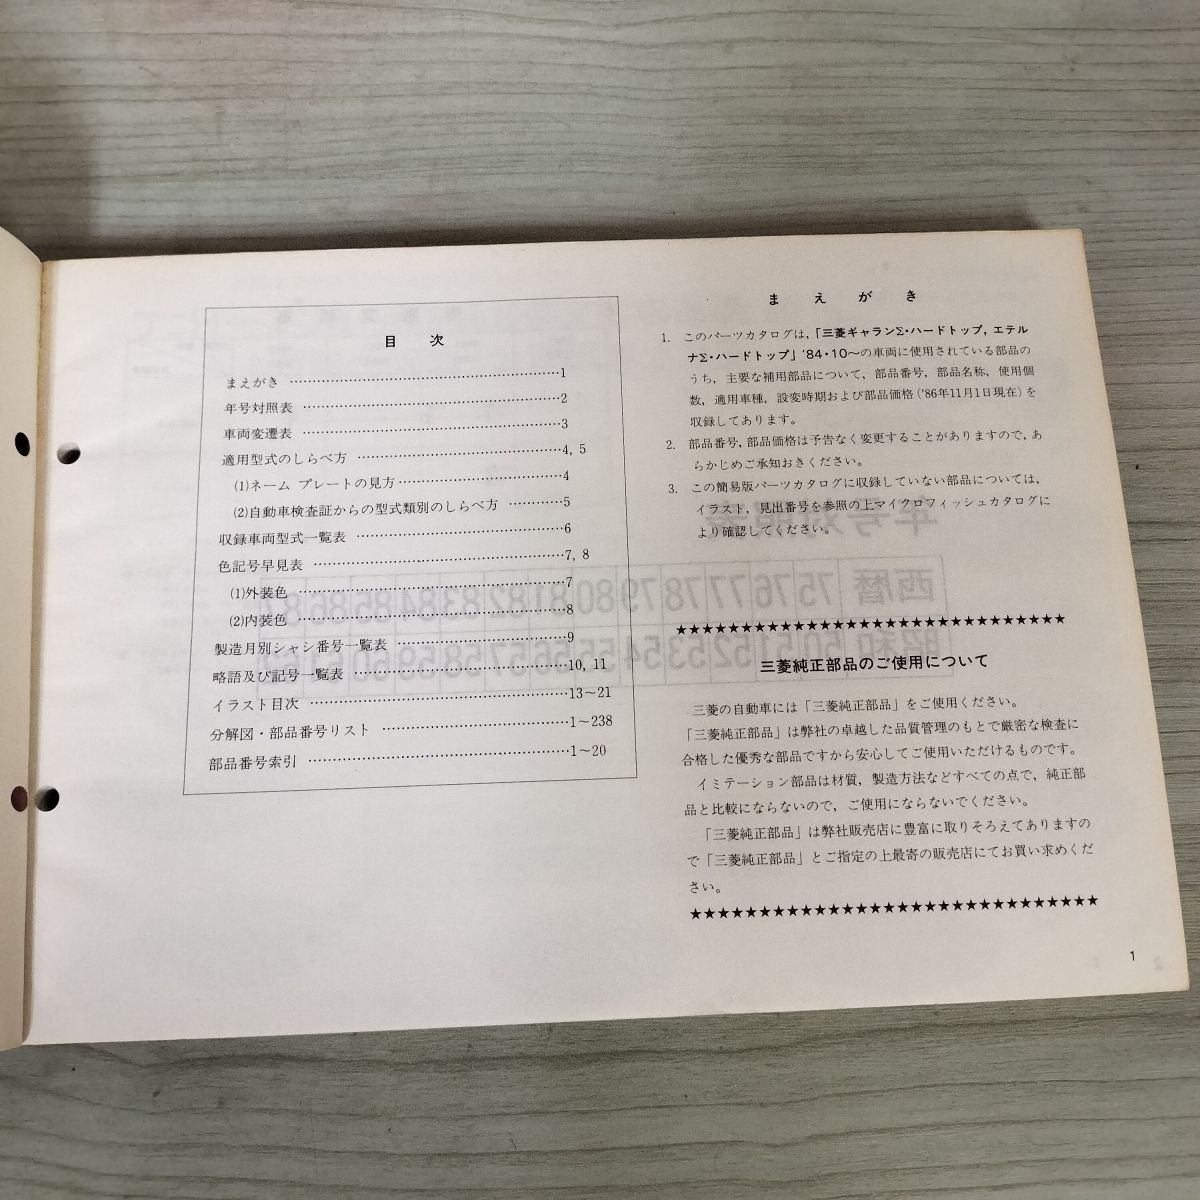 目 次
まえがき ……………………………………………………1
年号対照表 …………………………………………………2
車両変遷表 …………………………………………………3
適用型式のしらべ方 ……………………………………4, 5
(1)ネーム プレートの見方 ………………………………4
(2)自動車検査証からの型式類別のしらべ方 …………5
収録車両型式一覧表 ………………………………………6
色記号早見表 ……………………………………………7, 8
(1)外装色 …………………………………………………7
(2)内装色 …………………………………………………8
製造月別シャシ番号一覧表 ………………………………9
略語及び記号一覧表 ……………………………………10, 11
イラスト目次 ……………………………………………13～21
分解図・部品番号リスト ………………………………1～238
部品番号索引 ……………………………………………1～20
ま え が き
1. このパーツカタログは,「三菱ギャランΣ・ハードトップ, エテル
ナΣ・ハードトップ」'84・10～の車両に使用されている部品の
うち, 主要な補用部品について, 部品番号, 部品名称, 使用個
数, 適用車種, 設変時期および部品価格('86年11月1日現在)を
収録してあります。
2. 部品番号, 部品価格は予告なく変更することがありますので, あ
らかじめご承知おきください。
3. この簡易版パーツカタログに収録していない部品については,
イラスト, 見出番号を参照の上マイクロフィッシュカタログに
より確認してください。
★★★★★★★★★★★★★★★★★★★★★★★★★★★★★★
三菱純正部品のご使用について
三菱の自動車には「三菱純正部品」をご使用ください。
「三菱純正部品」は弊社の卓越した品質管理のもとで厳密な検査に
合格した優秀な部品ですから安心してご使用いただけるものです。
イミテーション部品は材質, 製造方法などすべての点で, 純正部
品と比較にならないので, ご使用にならないでください。
「三菱純正部品」は弊社販売店に豊富に取りそろえてありますの
で「三菱純正部品」とご指定の上最寄の販売店にてお買い求めくだ
さい。
★★★★★★★★★★★★★★★★★★★★★★★★★★★★★★
1